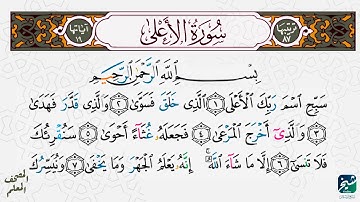 ترتيبها ٨٧ سُورَةُ الأَعْلَىٰ آياتها ١٩
بِسْمِ اللَّهِ الرَّحْمَٰنِ الرَّحِيمِ
سَبِّحِ اسْمَ رَبِّكَ الْأَعْلَى ١ الَّذِي خَلَقَ فَسَوَّىٰ ٢ وَالَّذِي قَدَّرَ فَهَدَىٰ
٣ وَالَّذِي أَخْرَجَ الْمَرْعَىٰ ٤ فَجَعَلَهُ غُثَاءً أَحْوَىٰ ٥ سَنُقْرِئُكَ
فَلَا تَنسَىٰ ٦ إِلَّا مَا شَاءَ اللَّهُ ۚ إِنَّهُ يَعْلَمُ الْجَهْرَ وَمَا يَخْفَىٰ ٧ وَنُيَسِّرُكَ
المصحف المعلم